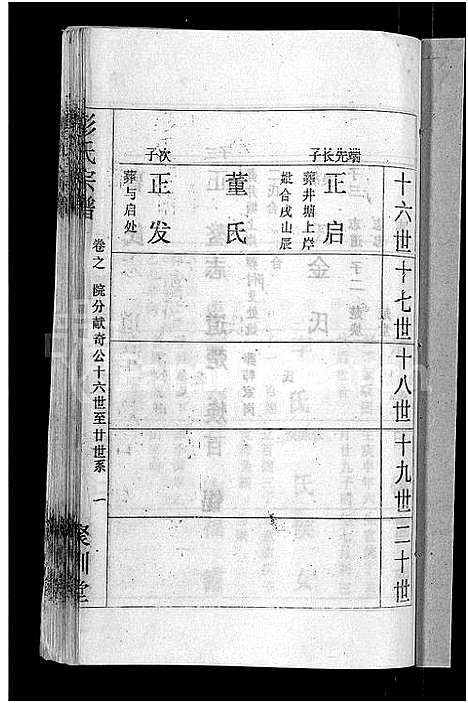 十六世
十七世
十八世
十九世
二十世
端先长子
正启
葬井塘上岸
妣合戌山辰
董氏
次子
正发
葬与启处
彭氏宗谱
卷之
院分献奇公十六世至廿世系
一
聚训堂